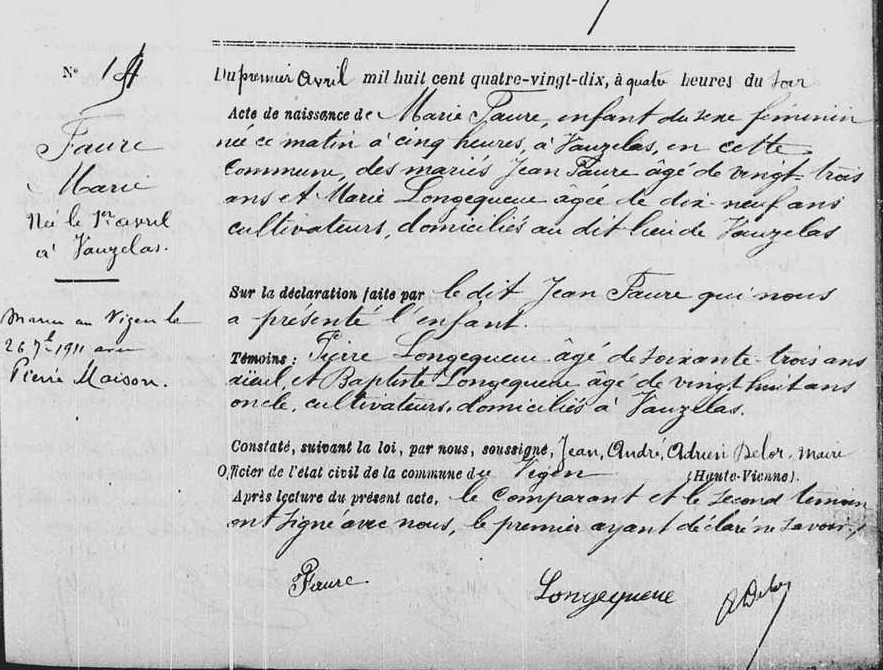 N° 14
Faure
Marie
Née le 1er avril
à Vauzelas.
Marié au Vigen le
26 7bre 1911 avec
Pierre Maison.
Du premier Avril mil huit cent quatre-vingt-dix, à quatre heures du soir
Acte de naissance de Marie Faure, enfant du sexe feminin
née ce matin à cinq heures, à Vauzelas, en cette
Commune, des mariés Jean Faure âgé de vingt-trois
ans et Marie Longequeue âgée de dix-neuf ans
cultivateurs, domiciliés au dit lieu de Vauzelas
Sur la déclaration faite par le dit Jean Faure qui nous
a présenté l'enfant.
Témoins : Pierre Longequeue âgé de soixante-trois ans
aïeul, et Baptiste Longequeue âgé de vingt huit ans
oncle, cultivateurs, domiciliés à Vauzelas.
Constaté, suivant la loi, par nous, soussigné, Jean, André, Adrien Delor, maire
Officier de l'état civil de la commune du Vigen (Haute-Vienne).
Après lecture du présent acte, le comparant et le second témoin
ont signé avec nous, le premier ayant déclaré ne savoir
Faure Longequeue A Delor